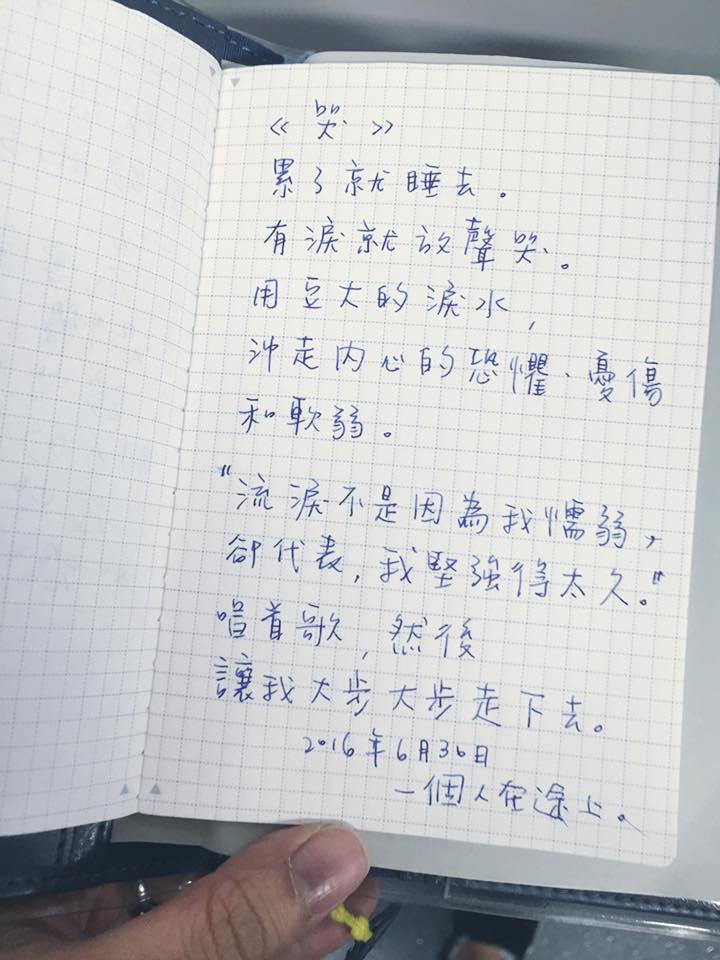 《哭》
累了就睡去。
有淚就放聲哭。
用豆大的淚水,
沖走內心的恐懼、憂傷
和軟弱。
"流淚不是因為我懦弱,
卻代表,我堅強得太久。"
唱首歌,然後
讓我大步大步走下去。
2016年6月30日
一個人在途上。